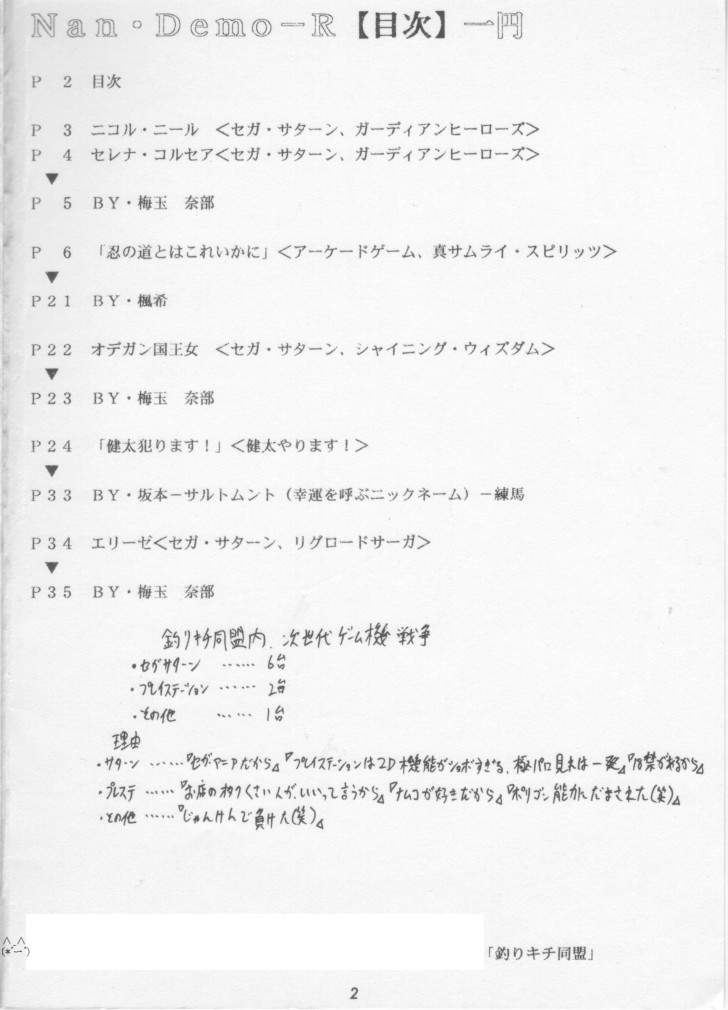 Nan・Demo－R【目次】一円
P 2 目次
P 3 ニコル・ニール ＜セガ・サターン、ガーディアンヒーローズ＞
P 4 セレナ・コルセア＜セガ・サターン、ガーディアンヒーローズ＞
▼
P 5 BY・梅玉 奈部
P 6 「忍の道とはこれいかに」＜アーケードゲーム、真サムライ・スピリッツ＞
▼
P21 BY・楓希
P22 オデガン国王女 ＜セガ・サターン、シャイニング・ウィズダム＞
▼
P23 BY・梅玉 奈部
P24 「健太犯ります！」＜健太やります！＞
▼
P33 BY・坂本－サルトムント（幸運を呼ぶニックネーム）－練馬
P34 エリーゼ＜セガ・サターン、リグロードサーガ＞
▼
P35 BY・梅玉 奈部
釣りキチ同盟内、次世代ゲーム機 戦争
・セガサターン …… 6台
・プレイステーション …… 2台
・その他 …… 1台
理由
・サターン ……『セガマニアだから』『プレイステーションは2D機能がショボすぎる、極パロ見れば一発』『18禁があるから』
・プレステ ……『お店のオタクくさい人が、いいって言うから』『ナムコが好きだから』『ポリゴン能力にだまされた(笑)』
・その他 ……『じゃんけんで負けた(笑)』
「釣りキチ同盟」
2